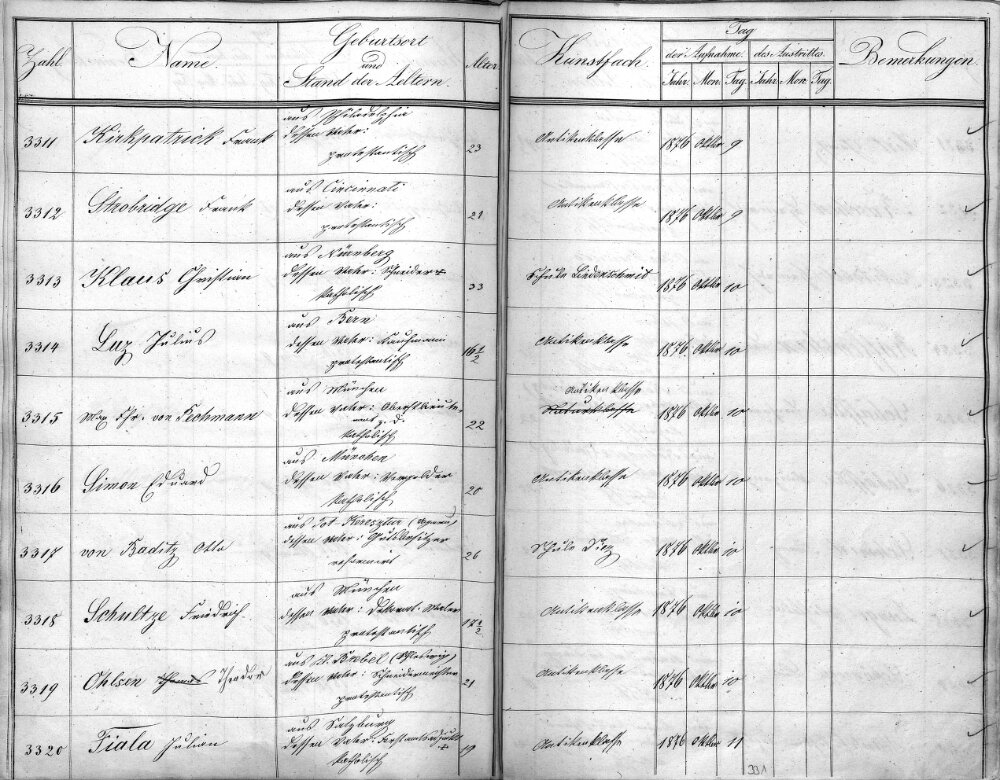 Zahl. Name. Geburtsort und Stand der Aeltern. Alter. Kunstfach. Tag der Aufnahme. des Austrittes. Bemerkungen.
Jahr. Mon. Tag. Jahr. Mon. Tag.
aus Philadelphia
3311 Kirkpatrick Frank dessen Vater: 23 Antikenklasse 1876 Oktbr 9
protestantisch
aus Cincinnati
3312 Strobridge Frank dessen Vater: 21 Antikenklasse 1876 Oktbr 9
protestantisch
aus Nürnberg
3313 Klaus Christian dessen Vater: Schneider + 33 Schule Lindenschmit 1876 Oktbr 10
katholisch
aus Bern
3314 Luz Julius dessen Vater: Kaufmann 16 1/2 Antikenklasse 1876 Oktbr 10
protestantisch
aus München Antikenklasse
3315 Max Frhr. von Pechmann dessen Vater: Oberstlieut- 22 Naturklasse 1876 Oktbr 10
nant z. D.
katholisch
aus München
3316 Simon Eduard dessen Vater: Vergolder 20 Antikenklasse 1876 Oktbr 10
katholisch
aus Tot-Keresztur (Ungarn)
3317 von Baditz Otto dessen Vater: Gutsbesitzer 26 Schule Diez 1876 Oktbr 10
reformirt
aus München
3318 Schultze Friedrich. dessen Vater: Dekorat. Maler 17 1/2 Antikenklasse 1876 Oktbr 10
protestantisch
aus (Schleswig)
3319 Ohlsen Theodor dessen Vater: Schneidermeister 21 Antikenklasse 1876 Oktbr 10
protestantisch
aus Salzburg
3320 Fiala Julian dessen Vater: + 19 Antikenklasse 1876 Oktbr 11
katholisch
331